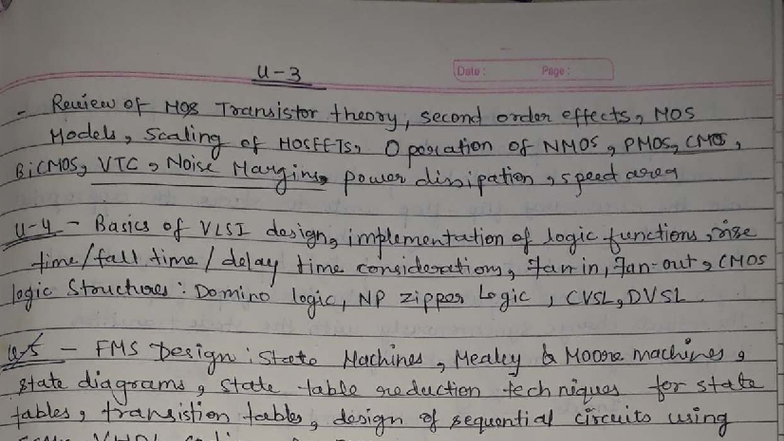 U-3
Date : Page :
- Review of MOS Transistor theory, second order effects, MOS
Models, Scaling of MOSFETs, Operation of NMOS, PMOS, CMOS,
BiCMOS, VTC, Noise Margins, power dissipation, speed area
U-4 - Basics of VLSI design, implementation of logic functions, rise
time/fall time/delay time considerations, Fan in, Fan-out, CMOS
logic Structures: Domino logic, NP zipper Logic, CVSL, DVSL.
U-5 - FMS Design: State Machines, Mealey & Moore machines,
state diagrams, state table reduction techniques for state
tables, transistion tables, design of sequential circuits using
VHDL